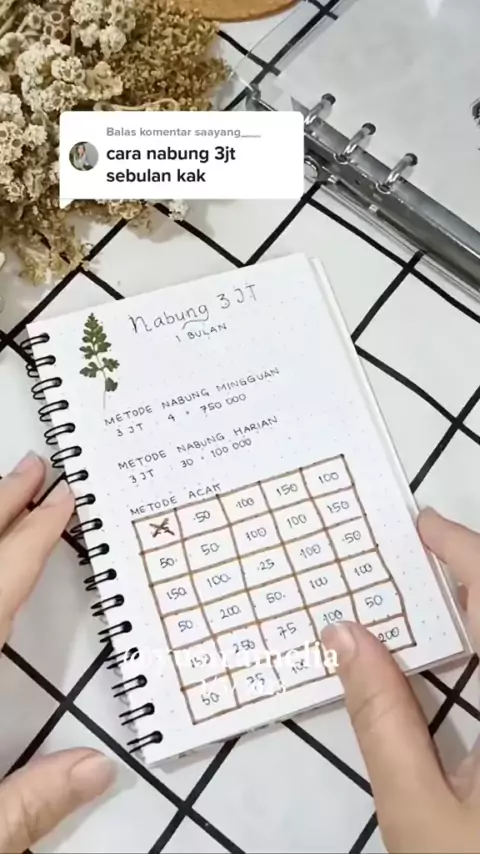 Balas komentar saayang___
cara nabung 3jt
sebulan kak
Nabung 3 JT
1 BULAN
METODE NABUNG MINGGUAN
3 JT : 4 = 750 000
METODE NABUNG HARIAN
3 JT : 30 = 100 000
METODE ACAK
50 100 150 100
50 50 100 100 150
150 100 25 100 50
50 200 50 100 100
250 75 100 50
50 25 100 200